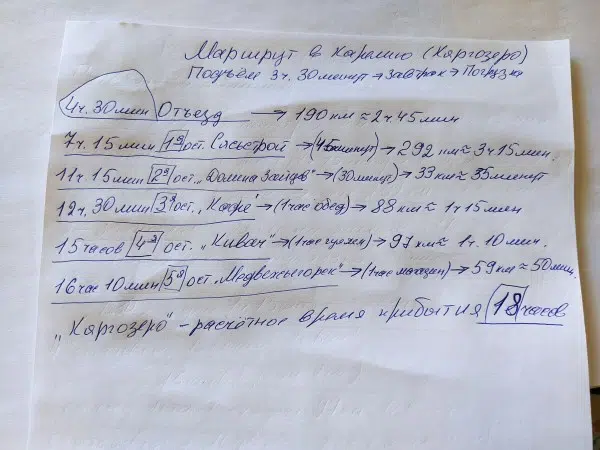 Маршрут в Карелию (Каргозеро)
Подъём 3ч. 30минут → Завтрак → Погрузка
4ч. 30мин Отъезд → 190 км ≈ 2ч 45мин
7ч. 15мин 1я ост. Сясьстрой → (45минут) → 292 км ≈ 3ч 15мин.
11ч 15мин 2я ост. „Долина Зайцев" → (30минут) → 33км ≈ 35минут
12ч. 30мин 3я ост. „Кафе" → (1час обед) → 88км ≈ 1ч 15мин
15часов 4я ост. „Кивач" → (1час гуляем) → 97км ≈ 1ч. 10мин.
16час 10мин 5я ост „Медвежьегорск" → (1час магазин) → 59км ≈ 50мин.
„Каргозеро" - расчётное время прибытия 18часов